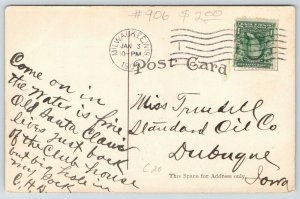 #906 $2.00
MILWAUKEE, WIS.
JAN 3
10-PM
Post Card
Come on in
the water is fine.
Old Santa Claus
lives just back
of the Club house
but big hole in
my sock
Miss Trudell
Standard Oil Co
Dubuque
Iowa
This Space for Address only.
C20